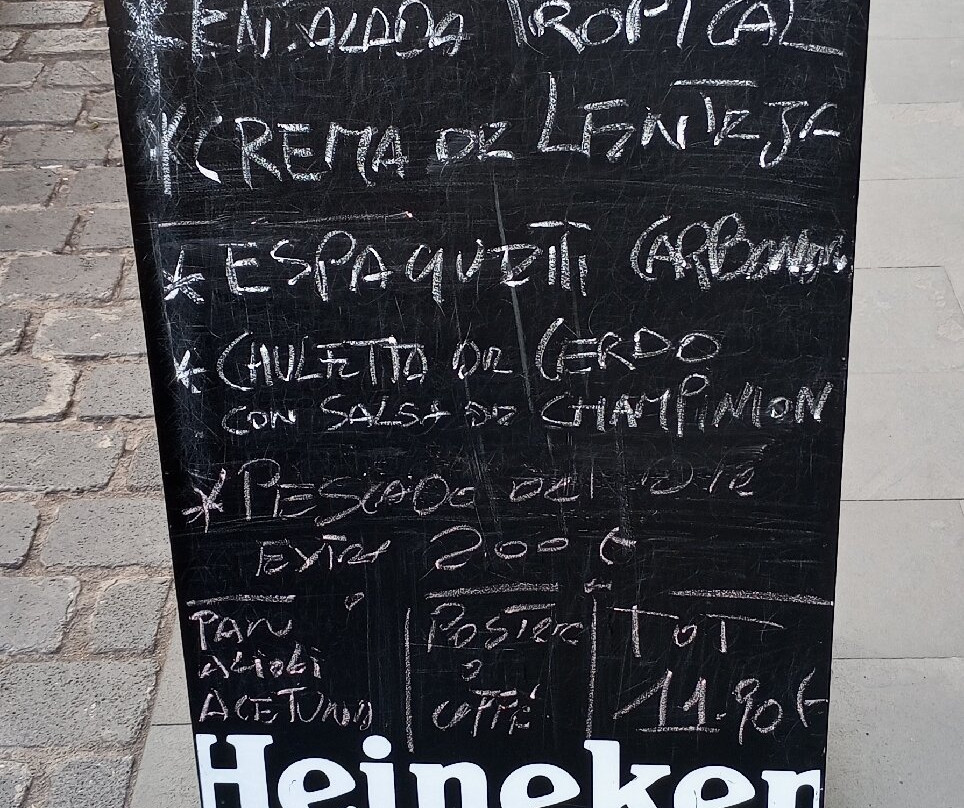 * ENSALADA TROPICAL
* CREMA DE LENTEJE
* ESPAQUETTI CARBONARA
* CHULETTA DE CERDO
CON SALSA DE CHAMPINION
* PESCADO DEL DIE
EXTRA 200 €
PAN
ALIOLI
ACETUNA
POSTRE
O
CAFFÉ
TOT
11.90 €
Heineken